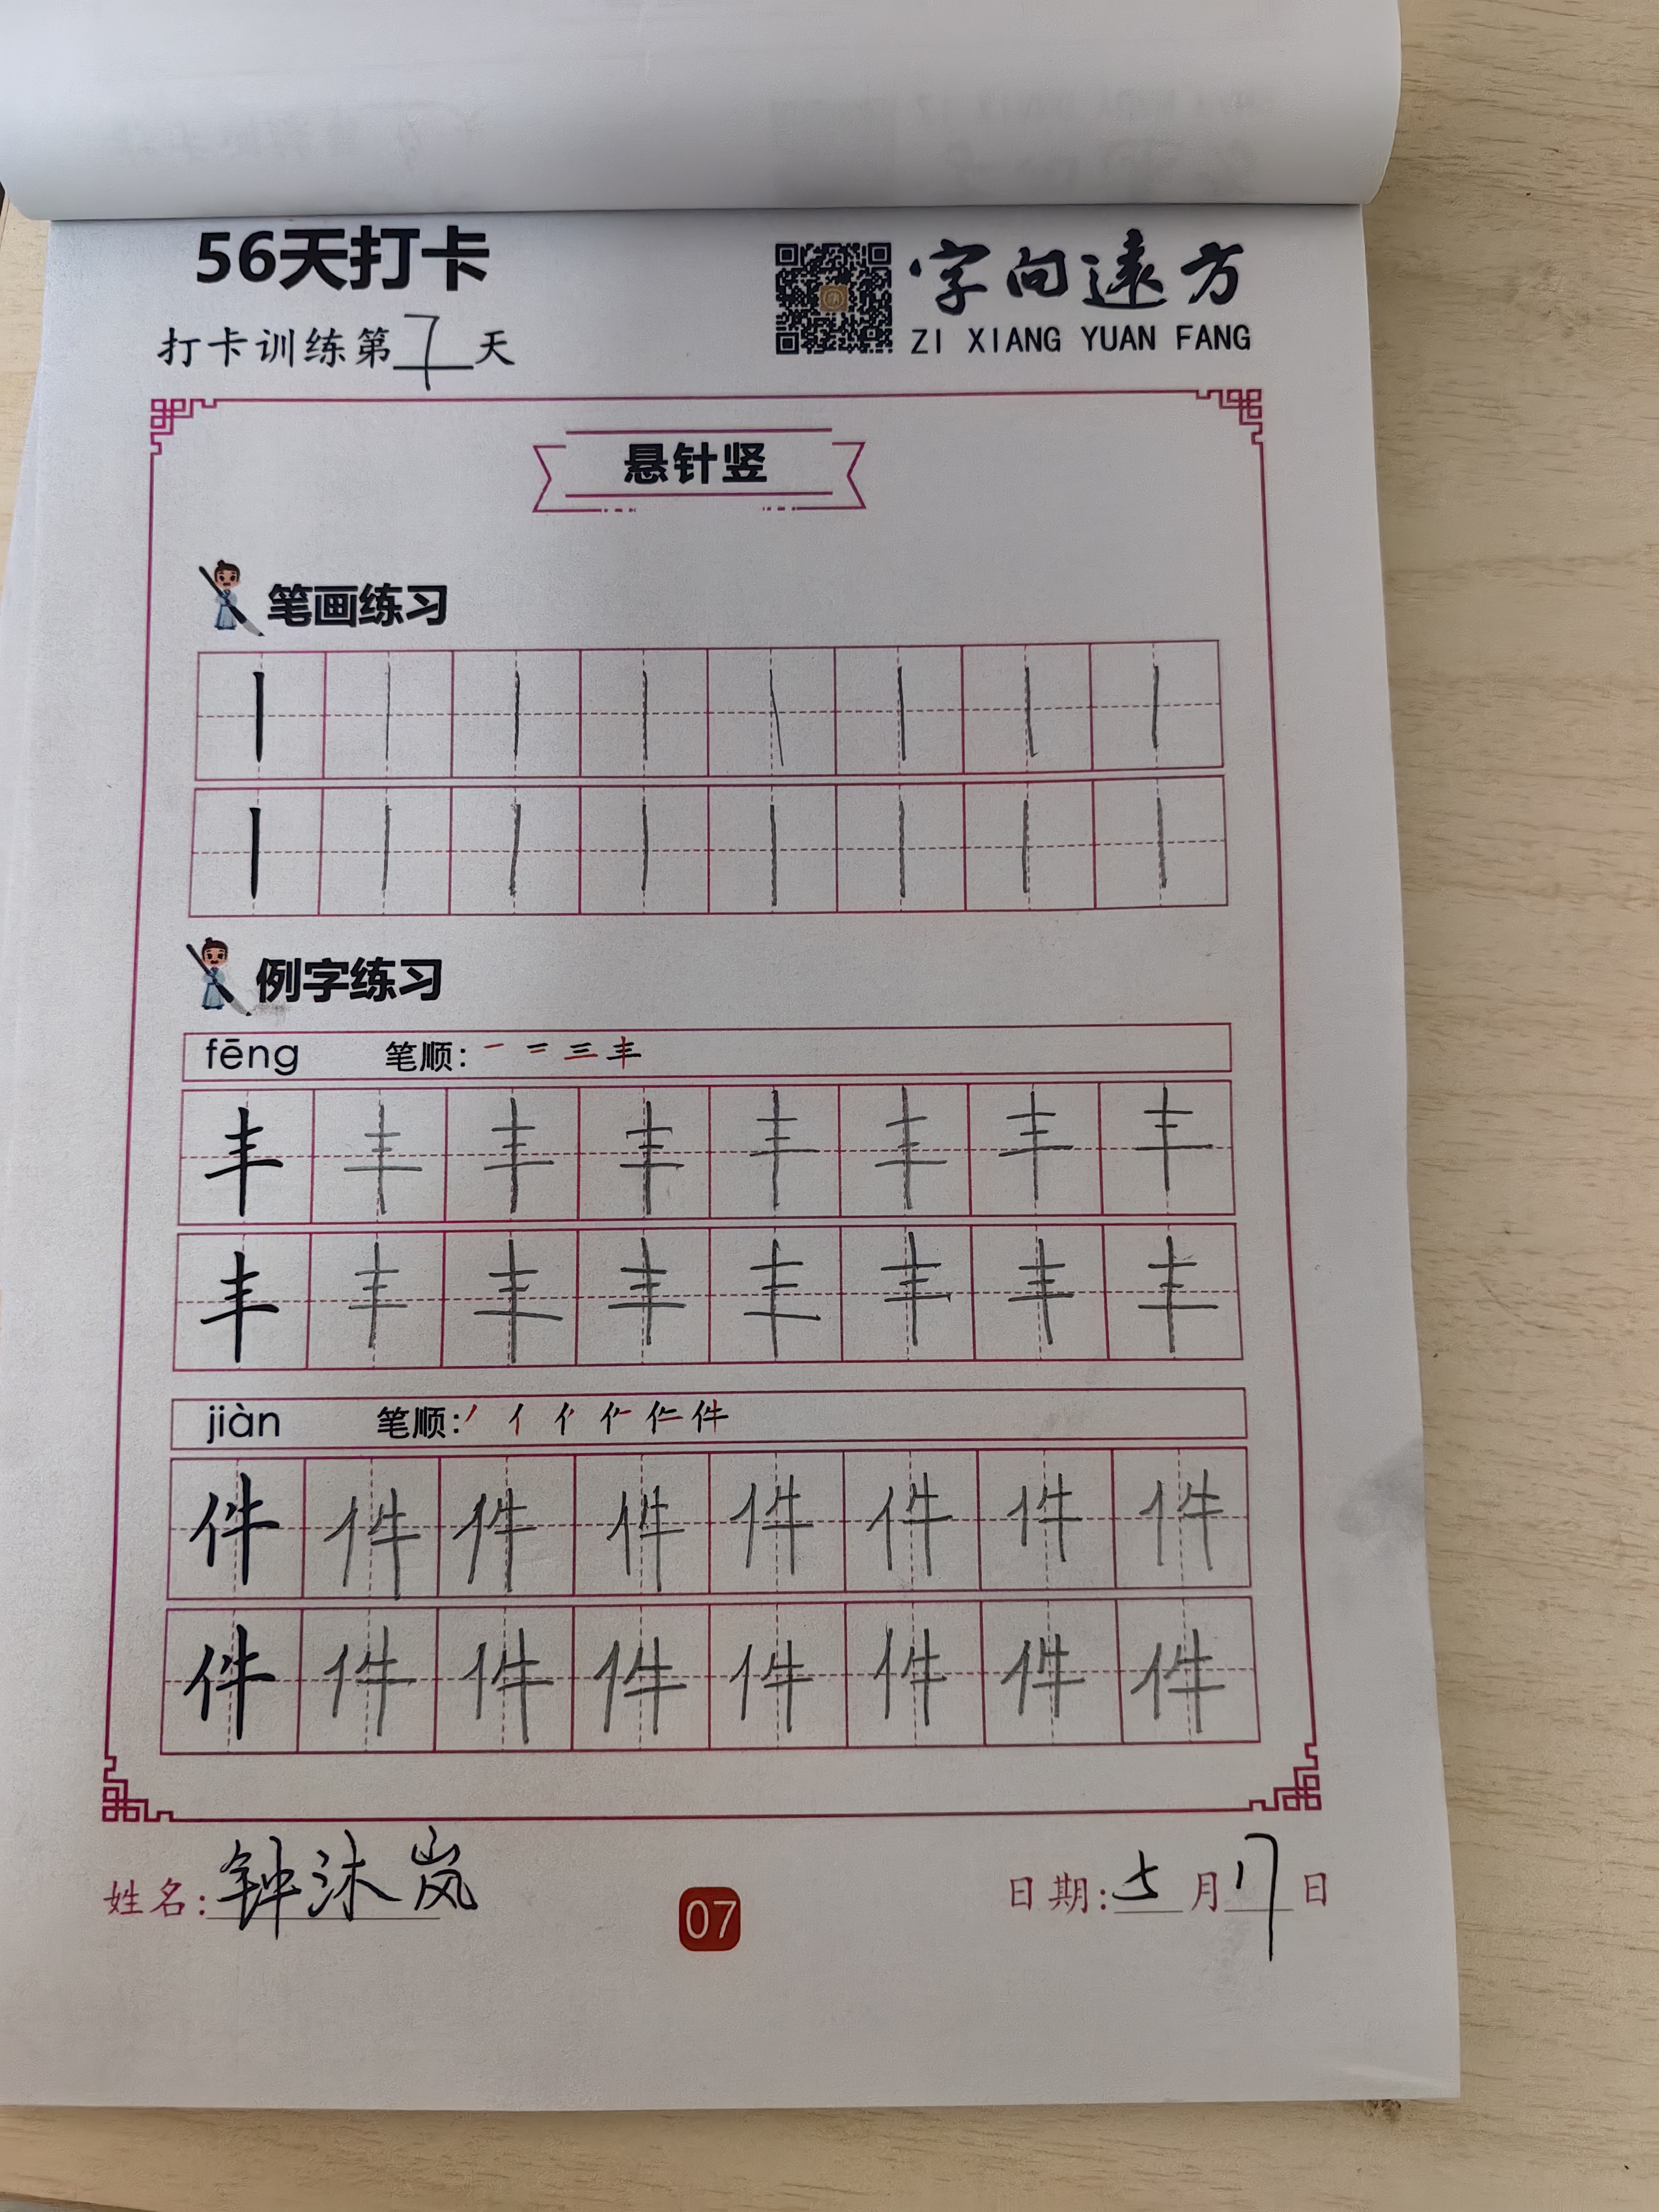 56天打卡
字向遠方
打卡训练第7天
ZI XIANG YUAN FANG
悬针竖
笔画练习
丨丨丨丨丨丨丨丨
丨丨丨丨丨丨丨丨
例字练习
fēng 笔顺: 一 二 三 丰
丰丰丰丰丰丰丰丰
丰丰丰丰丰丰丰丰
jiàn 笔顺: 丿 亻 亻 件
件件件件件件件件
件件件件件件件件
姓名: 钟沐岚
07
日期: 5月17日